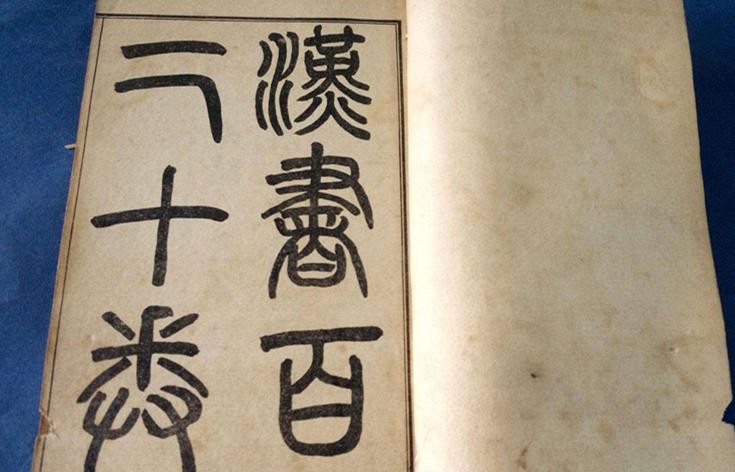 漢書百
二十卷